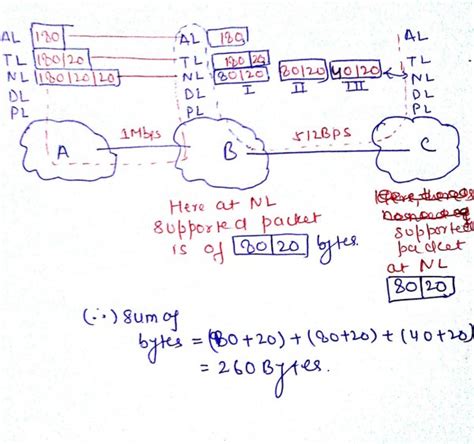 AL 180 AL 180 AL
TL 180/20 TL 180/20 TL
NL 180/20/20 NL 80/20 80/20 40/20 NL
DL DL I II III DL
PL PL PL
A 1Mbps B 512BPS C
Here at NL
supported packet
is of 80 20 bytes.
supported
packet
at NL
80 20
(∴) sum of
bytes = (80+20) + (80+20) + (40+20)
= 260 Bytes.